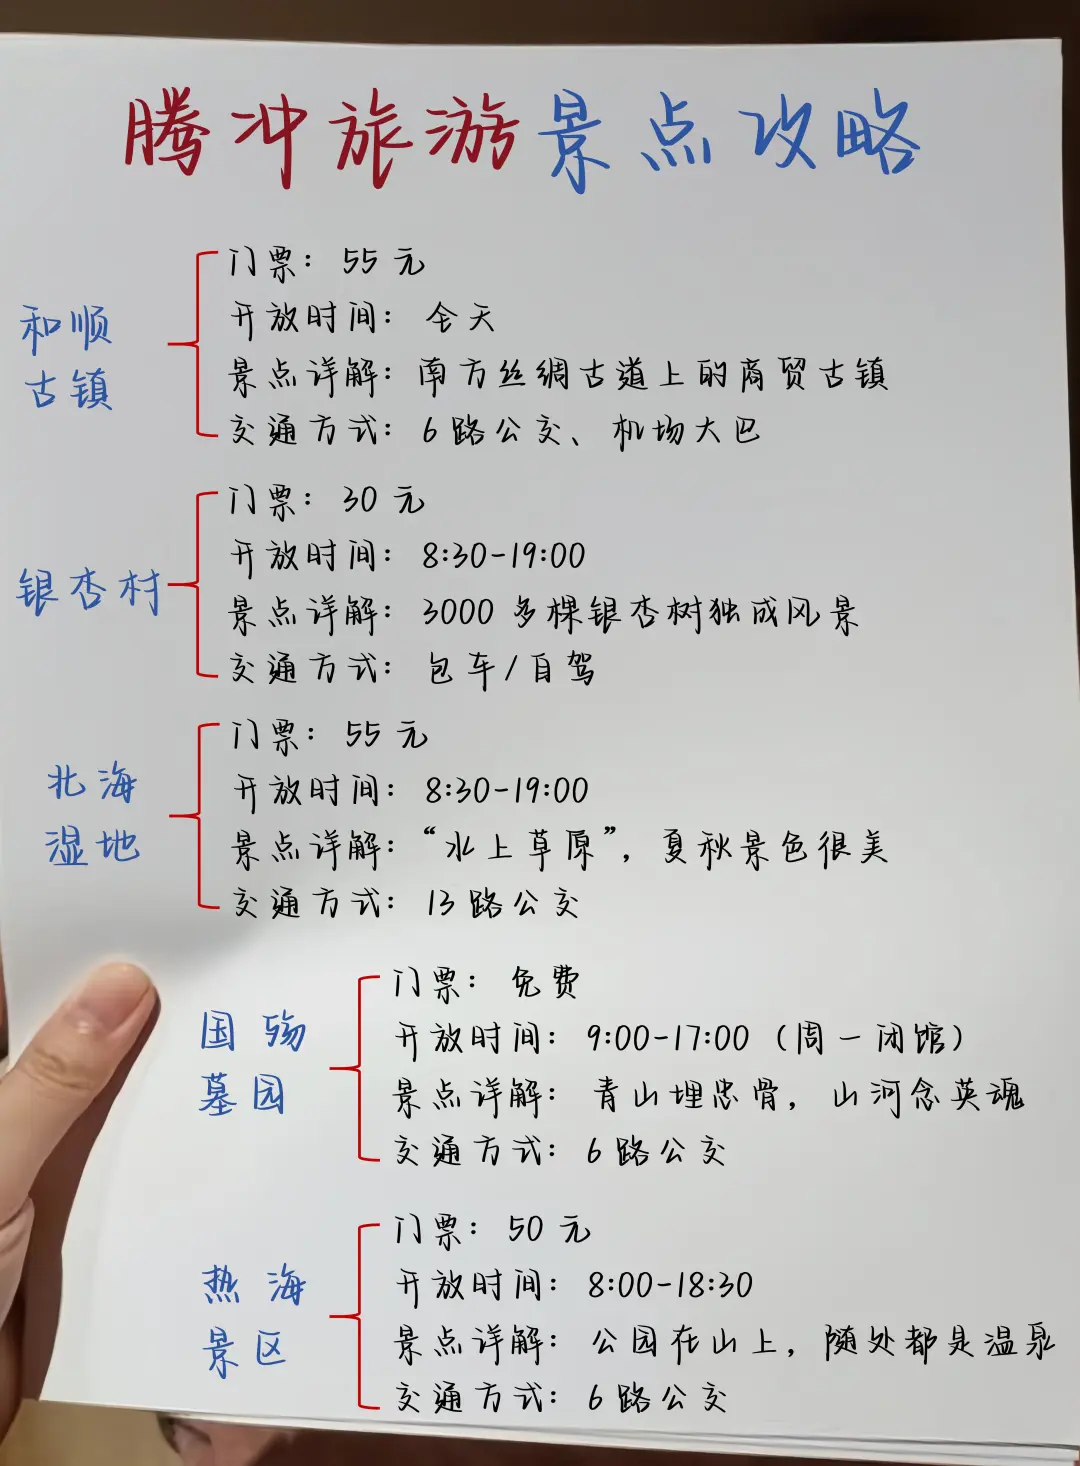 腾冲旅游景点攻略
和顺
古镇
门票：55元
开放时间：全天
景点详解：南方丝绸古道上的商贸古镇
交通方式：6路公交、机场大巴
银杏村
门票：30元
开放时间：8:30-19:00
景点详解：3000多棵银杏树独成风景
交通方式：包车/自驾
北海
湿地
门票：55元
开放时间：8:30-19:00
景点详解：“水上草原”，夏秋景色很美
交通方式：13路公交
国殇
墓园
门票：免费
开放时间：9:00-17:00（周一闭馆）
景点详解：青山埋忠骨，山河念英魂
交通方式：6路公交
热海
景区
门票：50元
开放时间：8:00-18:30
景点详解：公园在山上，随处都是温泉
交通方式：6路公交